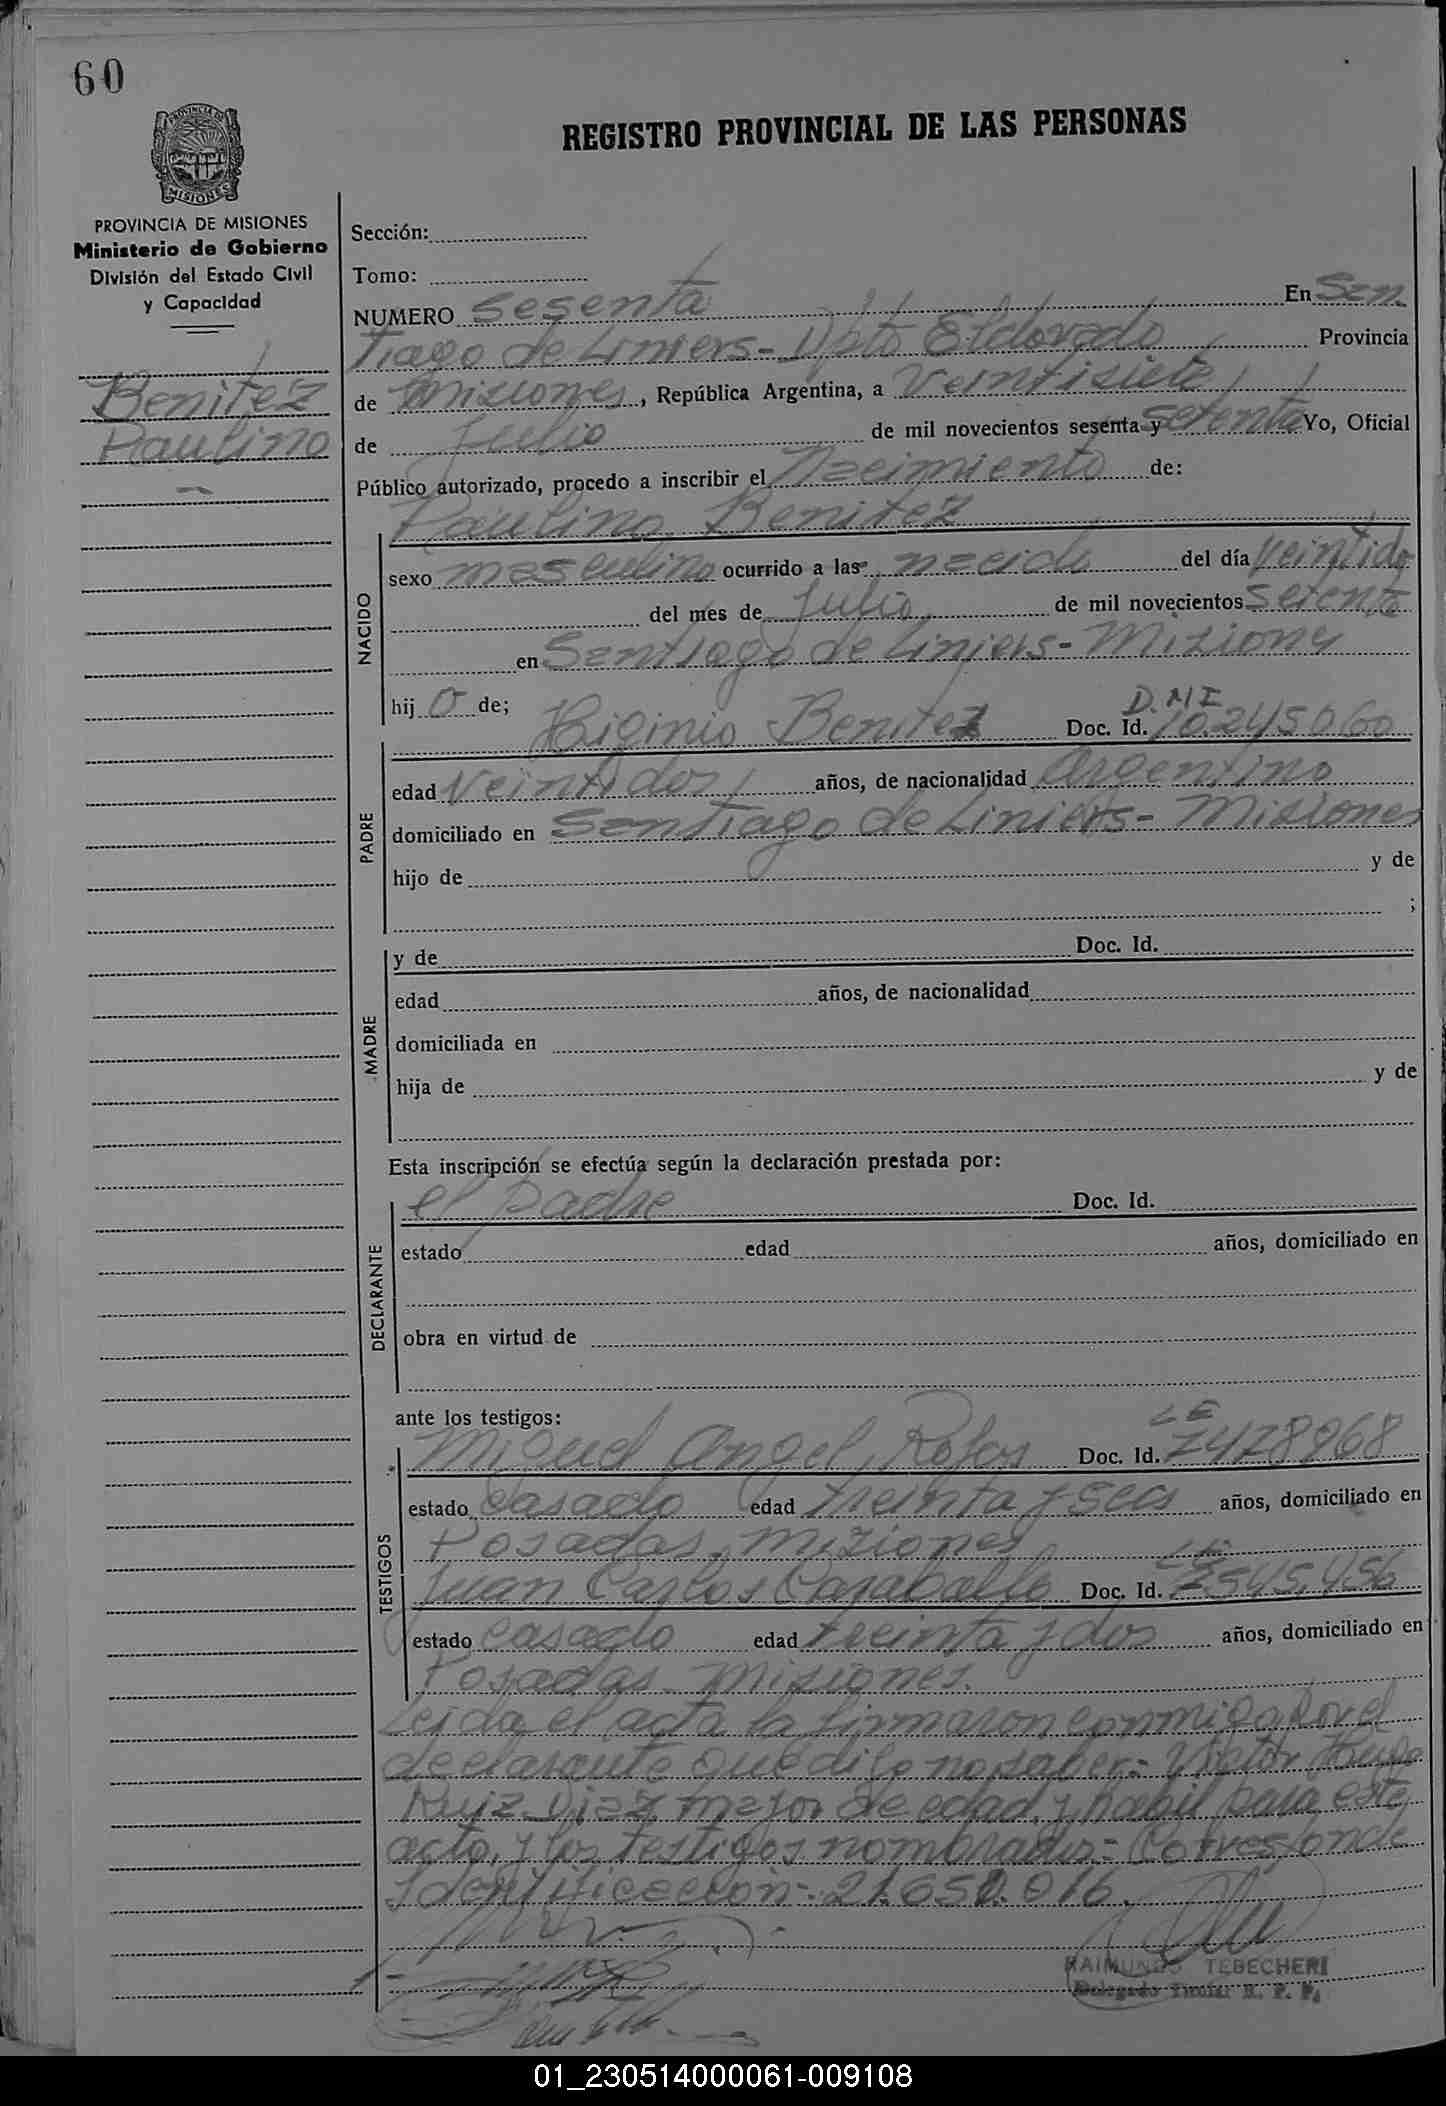 60
PROVINCIA DE
MISIONES
REGISTRO PROVINCIAL DE LAS PERSONAS
PROVINCIA DE MISIONES
Ministerio de Gobierno
División del Estado Civil
y Capacidad
Benitez
Paulino
Sección:
Tomo:
NUMERO sesenta En San
tiago de Liniers - Dpto Eldorado Provincia
de Misiones, República Argentina, a veintisiete
de Julio de mil novecientos sesenta y setenta Yo, Oficial
Público autorizado, procedo a inscribir el nacimiento de:
NACIDO
Paulino Benitez
sexo masculino ocurrido a las nacido del día veintido
del mes de Julio de mil novecientos setenta
en Santiago de Liniers - Misiones
hij o de;
PADRE
Higinio Benitez Doc. Id. D.N.I 10.245.060
edad Veintidos años, de nacionalidad Argentino
domiciliado en Santiago de Liniers - Misiones
hijo de y de
;
MADRE
y de Doc. Id.
edad años, de nacionalidad
domiciliada en
hija de y de
Esta inscripción se efectúa según la declaración prestada por:
DECLARANTE
el padre Doc. Id.
estado edad años, domiciliado en
obra en virtud de
ante los testigos:
TESTIGOS
Miguel Angel Doc. Id. LE 7478968
estado casado edad treinta y seis años, domiciliado en
Posadas, Misiones
Juan Carlos Caraballo Doc. Id.
estado casado edad treinta y dos años, domiciliado en
Posadas Misiones.
Leida el acta la firmaron conmigo por el
declarante que dijo no saber:- Victor Hugo
Ruiz Diaz mayor de edad, y habil para este
acto, y los testigos nombrados:- Corresponde
Identificacion:- 21.651.016.
RAIMUNDO TEBECHERI
Delegado Titular R. P. P.
01_230514000061-009108